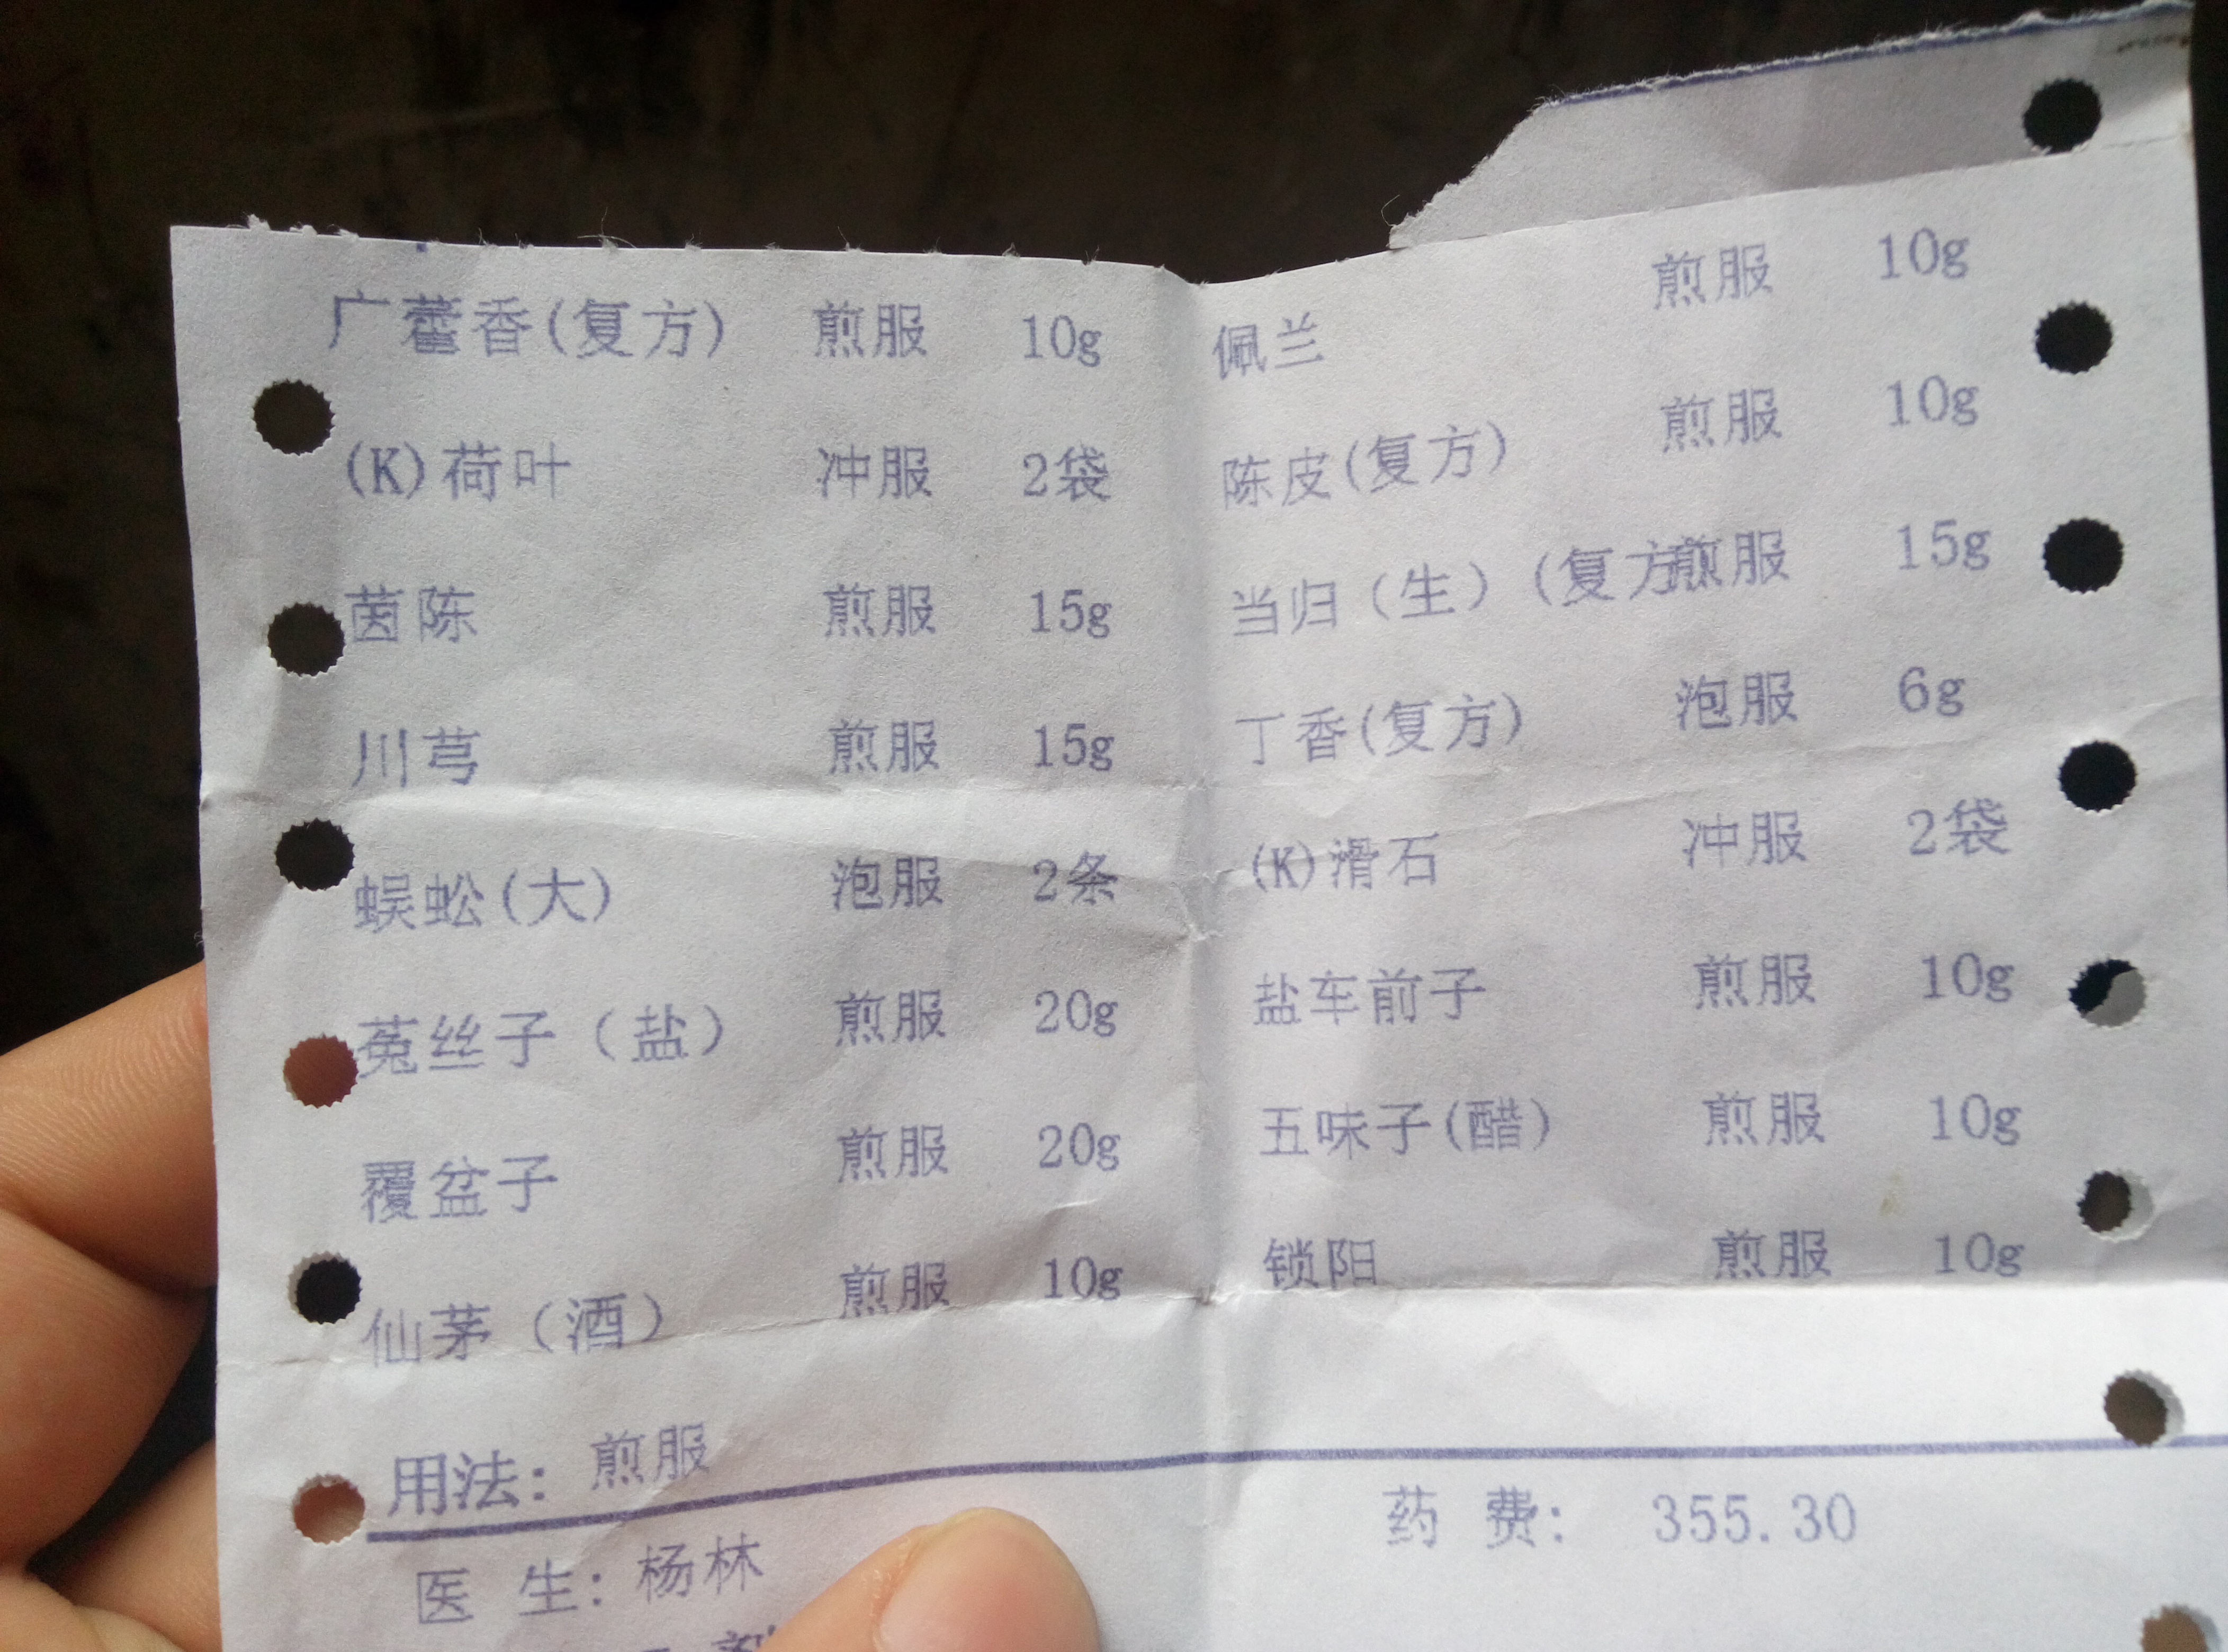 广藿香(复方) 煎服 10g 佩兰 煎服 10g
(K)荷叶 冲服 2袋 陈皮(复方) 煎服 10g
茵陈 煎服 15g 当归（生）(复方 煎服 15g
川芎 煎服 15g 丁香(复方) 泡服 6g
蜈蚣(大) 泡服 2条 (K)滑石 冲服 2袋
菟丝子（盐） 煎服 20g 盐车前子 煎服 10g
覆盆子 煎服 20g 五味子(醋) 煎服 10g
仙茅（酒） 煎服 10g 锁阳 煎服 10g
用法: 煎服
药 费: 355.30
医 生: 杨林